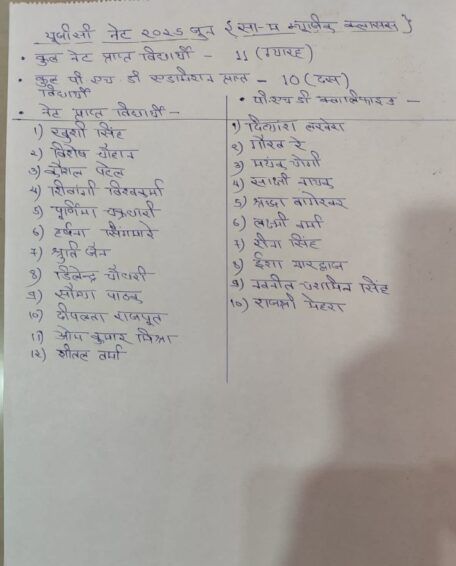 यूजीसी नेट २०२५ जून { सा-प म्यूजिक क्लासेस }
• कुल नेट प्राप्त विद्यार्थी - 11 (ग्यारह)
• कुल पी एच डी एडमिशन प्राप्त - 10 (दस)
विद्यार्थी
• नेट प्राप्त विद्यार्थी -
1) खुशी सिंह
2) विशेष चौहान
3) कौशल पटेल
4) शिवांगी विश्वकर्मा
5) पूर्णिमा
6) हर्षना सिंगमारे
7) श्रुति जैन
8) डिलेन्द्र चौधरी
9) सौम्या पाठक
10) दीपलता राजपूत
11) ओम कुमार मिश्रा
12) शीतल वर्मा
• पी.एच.डी क्वालिफाइड -
1) दिलाशा लखेरा
2) गौरव रे
3) मयंक जोगी
4) साक्षी नायक
5) श्रद्धा बागेश्वर
6) लक्ष्मी वर्मा
7) रीना सिंह
8) ईशा भारद्वाज
9) नवनीत सिंह
10) राजश्री मेहरा